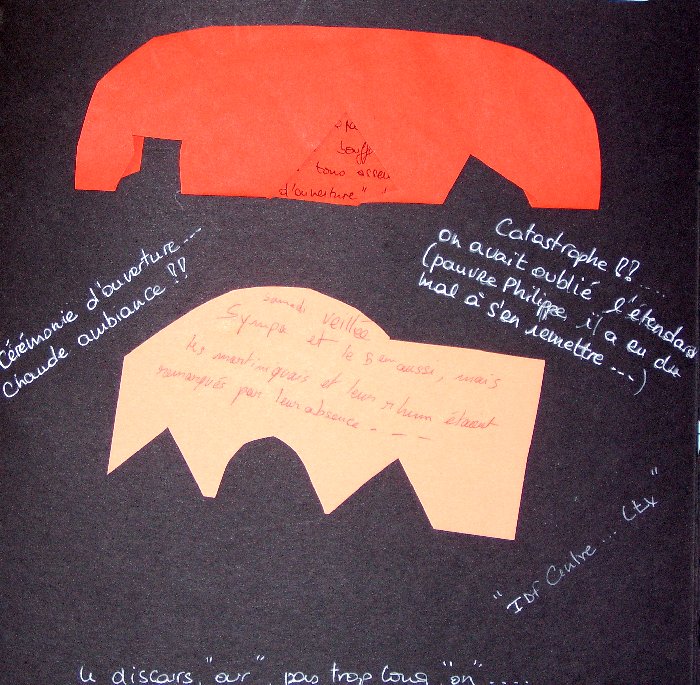 bouffe
tous assen
d'ouverture"
Cérémonie d'ouverture...
Chaude ambiance !!
Catastrophe !!....
on avait oublié l'étendard
(pauvre Philippe il a eu du
mal à s'en remettre ---)
samedi veillée
Sympa et le B en aussi, mais
les martiniquais et leur rhum étaient
remarqués par leur absence - - -
"IDF Centre ... Ctx"
le discours, "our", pas trop long "on".....